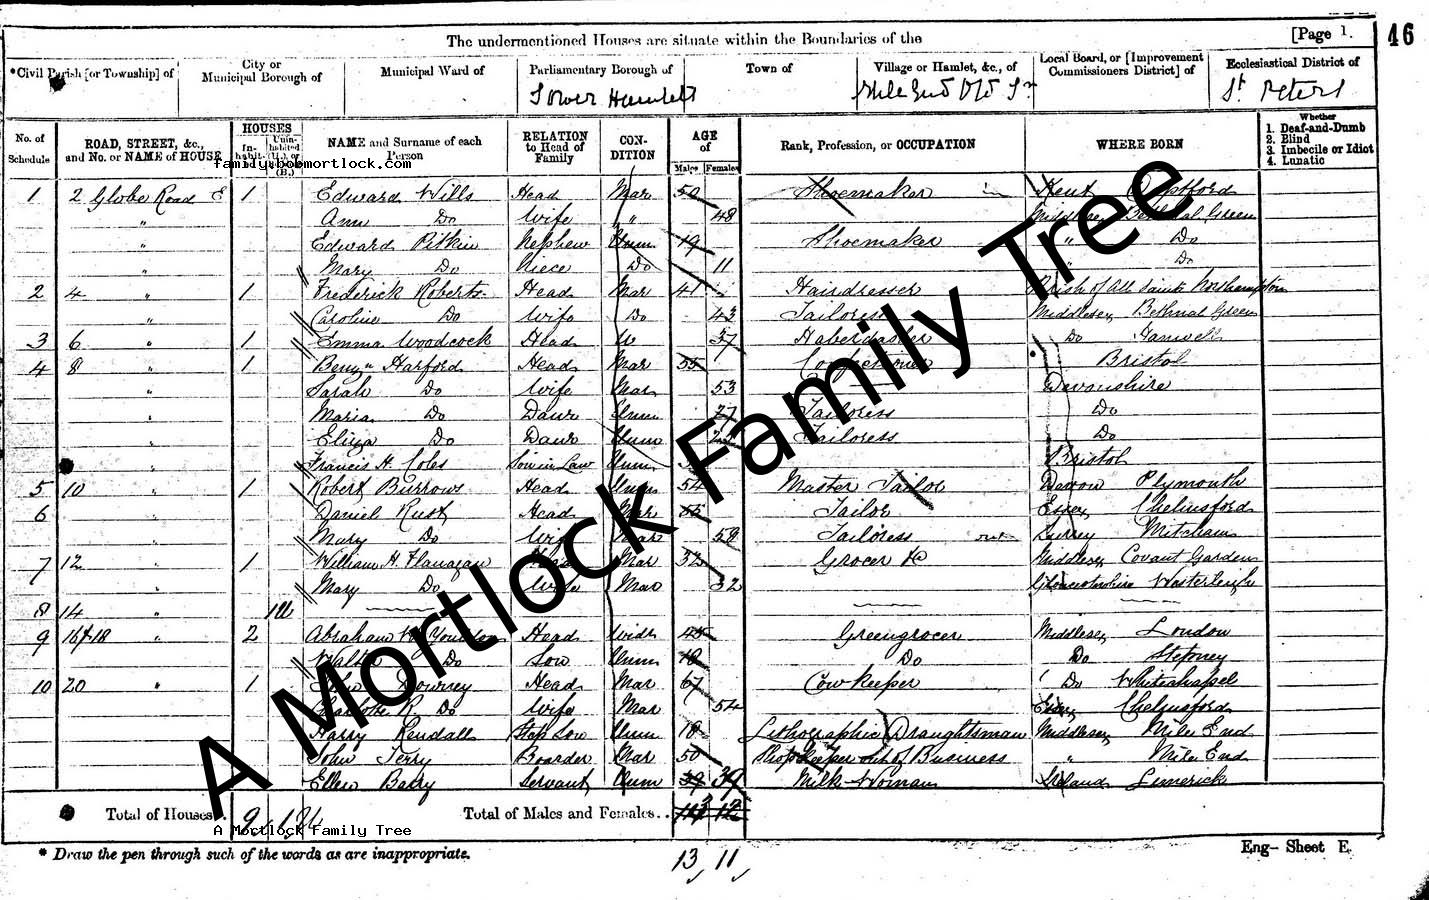 The undermentioned Houses are situate within the Boundaries of the [Page 1. 46
*Civil Parish [or Township] of City or Municipal Borough of Municipal Ward of Parliamentary Borough of Town of Village or Hamlet, &c., of Local Board, or [Improvement Commissioners District] of Ecclesiastical District of
Tower Hamlets Mile End Old Tn St Peters
No. of Schedule ROAD, STREET, &c., and No. or NAME of HOUSE HOUSES Inhabit- Uninhabited (U.) or (B.) NAME and Surname of each Person RELATION to Head of Family CONDITION AGE of Males Females Rank, Profession, or OCCUPATION WHERE BORN Whether 1. Deaf-and-Dumb 2. Blind 3. Imbecile or Idiot 4. Lunatic
family@bobmortlock.com
1 2 Globe Road E 1 Edward Wills Head Mar 50 Shoemaker Kent Deptford
" Ann Do Wife " 48 Middlesex Bethnal Green
" Edward Pitkin Nephew Unm 19 Shoemaker " Do
" Mary Do Niece Do 11 " Do
2 4 " 1 Frederick Roberts Head Mar 41 Hairdresser Parish of All Saints Northampton
" Caroline Do Wife Do 43 Tailoress Middlesex Bethnal Green
3 6 " 1 Emma Woodcock Head W 37 Haberdasher Do
4 8 " 1 Benjn Harford Head Mar 55 Confectioner Bristol
" Sarah Do Wife Mar 53 Devonshire
" Maria Do Daur Unm 27 Tailoress Do
" Eliza Do Daur Unm Tailoress Do
" Francis H. Coles Son in Law Unm Bristol
5 10 " 1 Robert Burrows Head Unm 54 Master Tailor Devon Plymouth
6 " Daniel Rust Head Mar 55 Tailor Essex Chelmsford
" Mary Do Wife Mar 58 Tailoress Surrey Mitcham
7 12 " 1 William H. Flanagan Head Mar 32 Grocer &c Middlesex Covant Garden
" Mary Do Wife Mar 32 Gloucestershire Westerleigh
8 14 " 1U
9 16 & 18 " 2 Abraham Head Widr 45 Greengrocer Middlesex London
" Walter Do Son Unm 18 Do Do Stepney
10 20 " 1 John Downey Head Mar 67 Cowkeeper Do Whitechapel
Charlotte R. Do Wife Mar 54 Essex Chelmsford
Harry Kendall Step Son Unm 18 Lithographic Draughtsman Middlesex Mile End
John Terry Boarder Mar 50 Shopkeeper out of Business " Mile End
Ellen Barry Servant Unm 39 39 Milk Woman Ireland Limerick
Total of Houses.. 9 1U Total of Males and Females.. 12
A Mortlock Family Tree
* Draw the pen through such of the words as are inappropriate. 13 11 Eng- Sheet E.
A Mortlock Family Tree